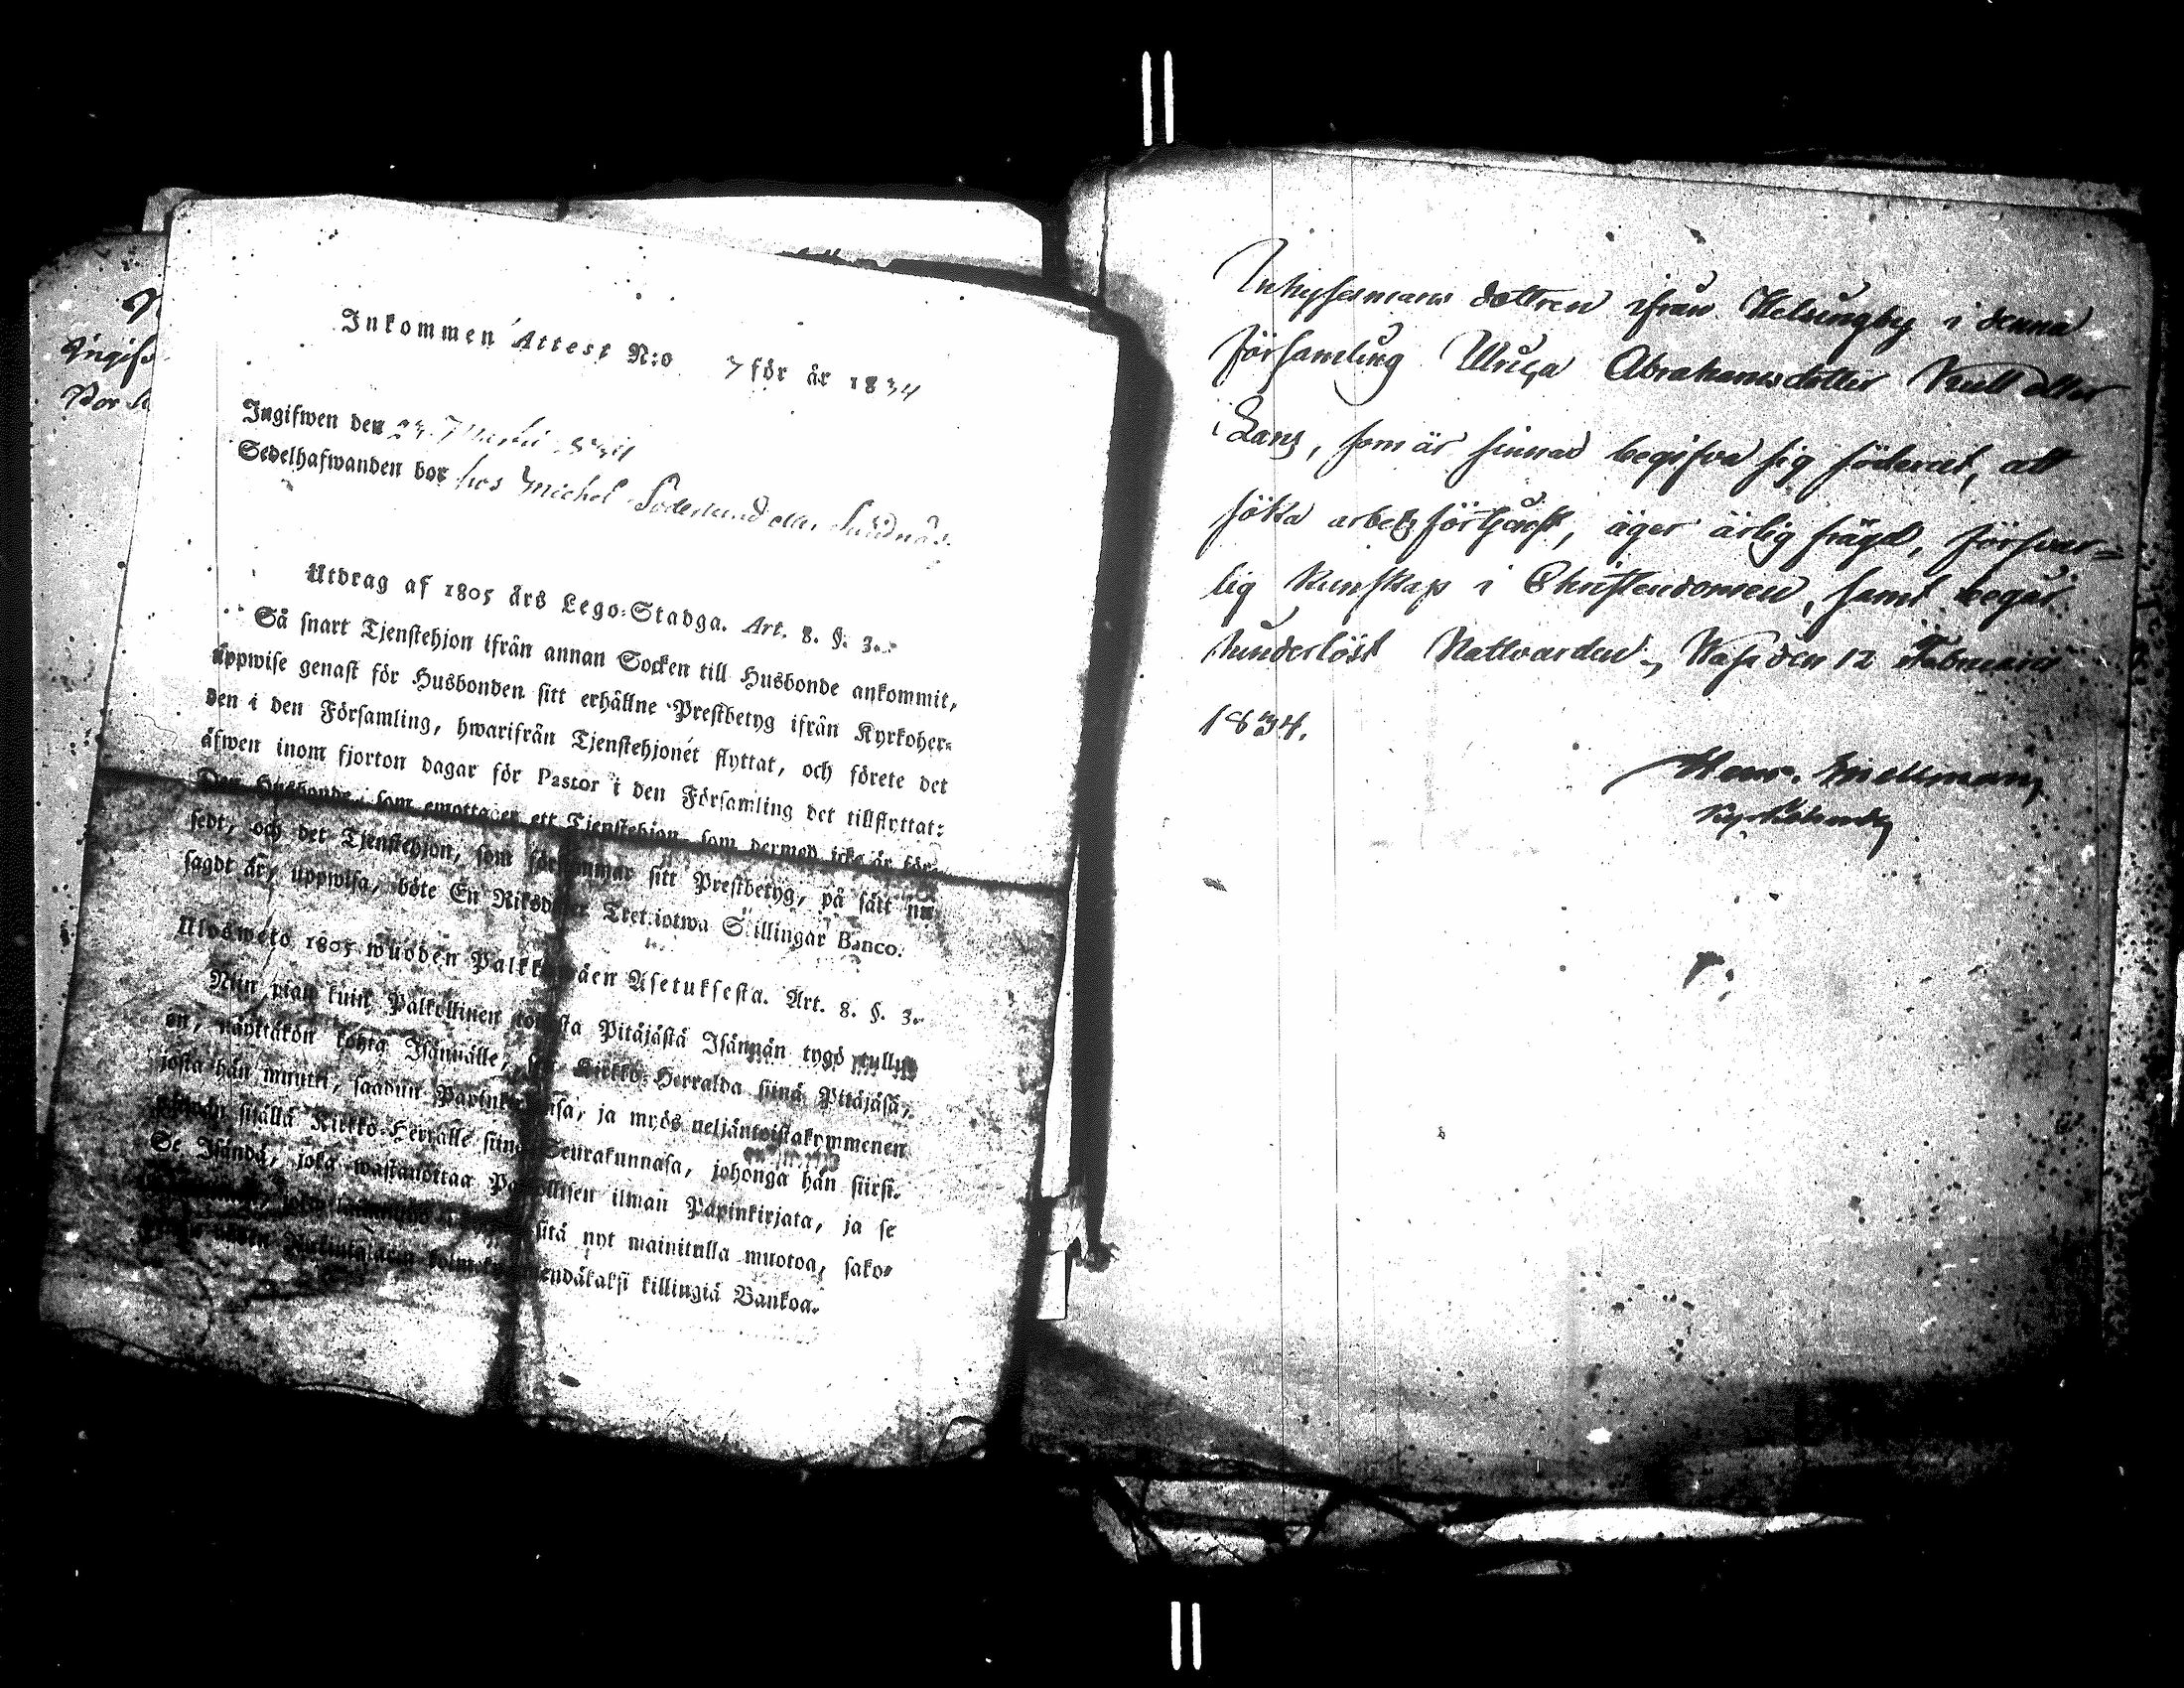 Inkommen Attest N:o 7 för år 1834
Ingifwen den
Sedelhafwanden bor hos Michel Söderlund eller
Utdrag af 1805 års Lego-Stadga. Art. 8. §. 3.
Så snart Tjenstehjon ifrån annan Socken till Husbonde ankommit,
uppwise genast för Husbonden sitt erhållne Prestbetyg ifrån Kyrkoher-
den i den Församling, hwarifrån Tjenstehjonet flyttat, och förete det
äfwen inom fjorton dagar för Pastor i den Församling det tillflyttat:
Den Husbonde, som emottager ett Tjenstehjon, som dermed icke är för-
sedt, och det Tjenstehjon, som försummar sitt Prestbetyg, på sätt nu
sagdt är, uppwisa, böte En Riksdaler Trettiotwa Skillingar Banco.
Ulosweto 1805 wuoden Asetuksesta. Art. 8. §. 3.
Niin pian kuin Palkollinen toisesta Pitäjästä Isännän tygö tullut
on, näyttäkön kohta Isännälle, Kirkko-Herralda siinä Pitäjäsä,
josta hän muutti, saadun Papinkirjansa, ja myös neljäntoistakymmenen
päiwän sisällä Kirkko-Herralle siinä Seurakunnasa, johonga hän siirsi.
Se Isändä, joka wastanottaa Palkollisen ilman Papinkirjata, ja se
sitä nyt mainitulla muotoa, sako-
kolmekymmendäkaksi killingiä Bankoa.
Inhysesmans dottren ifrån Helsingby i denna
församling Abrahamsdotter Kull eller
Lans, som är sinnad begifva sig söderut, att
söka arbetsförtjenst, äger ärlig frägd, försvar-
lig kunskap i Christendomen, samt begår
hinderlöst Nattvarden, Wasa den 12 Februarii
1834.